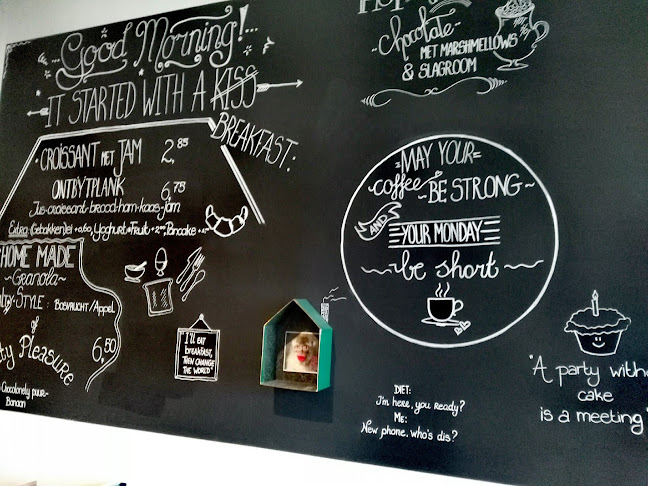 Good Morning!...
IT STARTED WITH A KISS
BREAKFAST:
CROISSANT MET JAM 2,85
ONTBYTPLANK 6,75
Jus-croissant-brood-ham-kaas-jam
Extra: Gebakken]ei + 0,60, Yoghurt + Fruit + 2,00, Pancake
HOME MADE
~Granola~
STYLE: BOSVRUCHT/APPEL
of
Pleasure
6,50
Chocolonely puur~
Banaan
I'll EAT
breakfast,
THEN CHANGE
THE WORLD
chocolate
MET MARSHMELLOWS
& SLAGROOM
MAY YOUR
coffee BE STRONG
AND
YOUR MONDAY
be short
DIET:
I'm here, you ready?
ME:
New phone, who's dis?
"A party
cake
is a meeting"